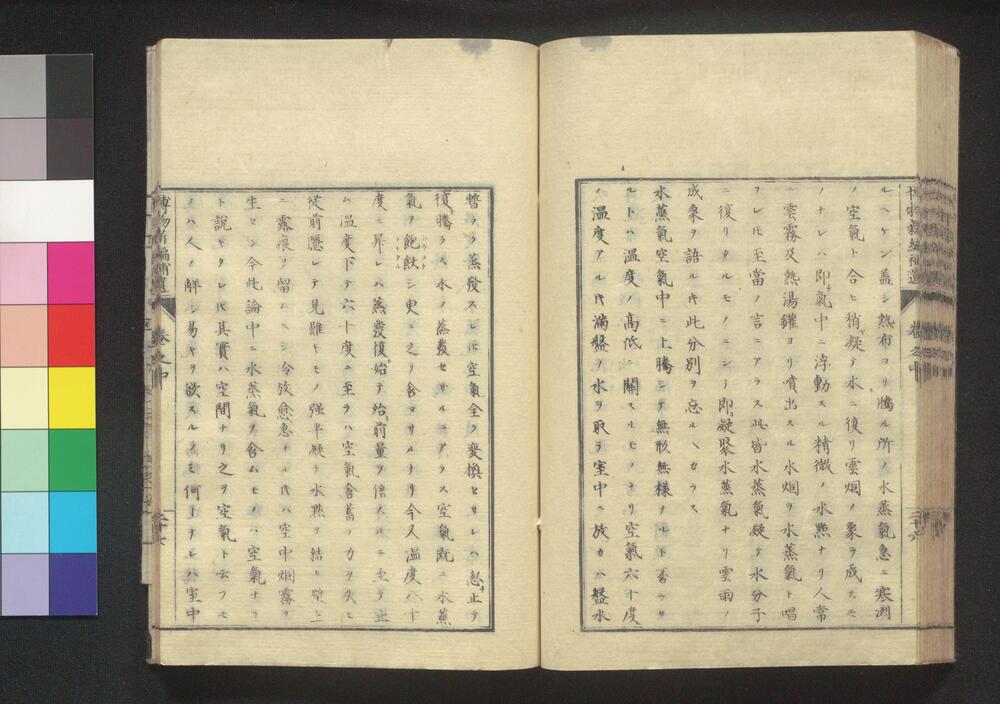 ルヘケン盖シ熱布ヨリ騰ル所ノ水蒸氣急ニ寒冽
ノ空氣ト合ヒ稍凝テ水ニ復リ雲烟ノ象ヲ成スモ
ノナレハ即氣中ニ浮動スル精微ノ水㸃ナリ人常
ニ雲霧及熱湯鑵ヨリ噴出スル水烟ヲ水蒸氣ト唱
フレ𪜈至當ノ言ニアラス此皆水蒸氣凝テ水分子
ニ復リタルモノニシテ即凝聚水蒸氣ナリ雲雨ノ
成象ヲ語ル𪜈此分別ヲ忘ルヘカラス
水蒸氣空氣中ニ上騰シテ無形無様ナルト否ラサ
ルトハ温度ノ高低ニ關スルモノナリ空氣六十度
ノ温度アル𪜈滿盤ノ水ヲ取テ室中ニ放カハ盤水
博物新編補遺
卷之中
二十六
暫ラク蒸發スレ𪜈空氣全ク變換セサレハ忽止テ
復騰ラス水ノ蒸發セサルニアラス空氣既ニ水蒸
氣ヲ飽飫シ更ニ之ヲ含マサルナリ今又温度八十
度ニ昇レハ蒸發復始テ始前量ヲ倍スルニ至テ止
ム温度下テ六十度ニ至ラハ空氣含蓄ノ力ヲ失ヒ
從前隠レテ見難キモノ强半凝テ水㸃ヲ結ヒ壁上
ニ露痕ヲ留ムヘシ令放愈急ナル𪜈ハ空中烟霧ヲ
生セン今此論中ニ水蒸氣ヲ含ムモノハ空氣ナリ
ト説キタレ𪜈其實ハ空間ナリ之ヲ空氣ト云フモ
ノハ人ノ解シ易キヲ欲スルノミ何トナレハ室中
博物新編補遺
卷之中
二十七